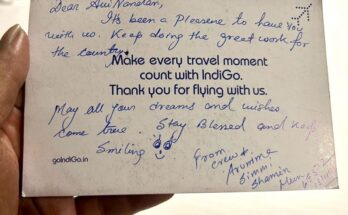 Dear
It's been a Pleasure to have you
with us. Keep doing the great work for
the country.
Make every travel moment
count with IndiGo.
Thank you for flying with us.
May all your dreams and wishes
come true. Stay Blessed and keep
Smiling
goIndiGo.in
From
crew
Simmi